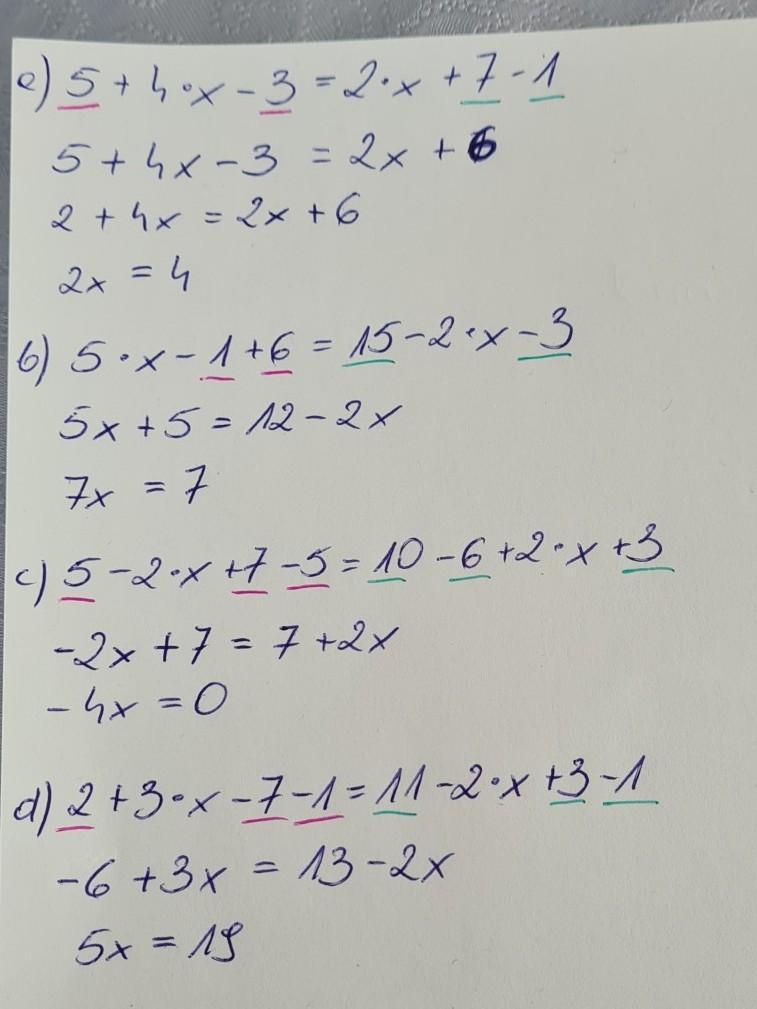 a) 5 + 4·x - 3 = 2·x + 7 - 1
5 + 4x - 3 = 2x + 6
2 + 4x = 2x + 6
2x = 4
b) 5·x - 1 + 6 = 15 - 2·x - 3
5x + 5 = 12 - 2x
7x = 7
c) 5 - 2·x + 7 - 5 = 10 - 6 + 2·x + 3
-2x + 7 = 7 + 2x
-4x = 0
d) 2 + 3·x - 7 - 1 = 11 - 2·x + 3 - 1
-6 + 3x = 13 - 2x
5x = 19